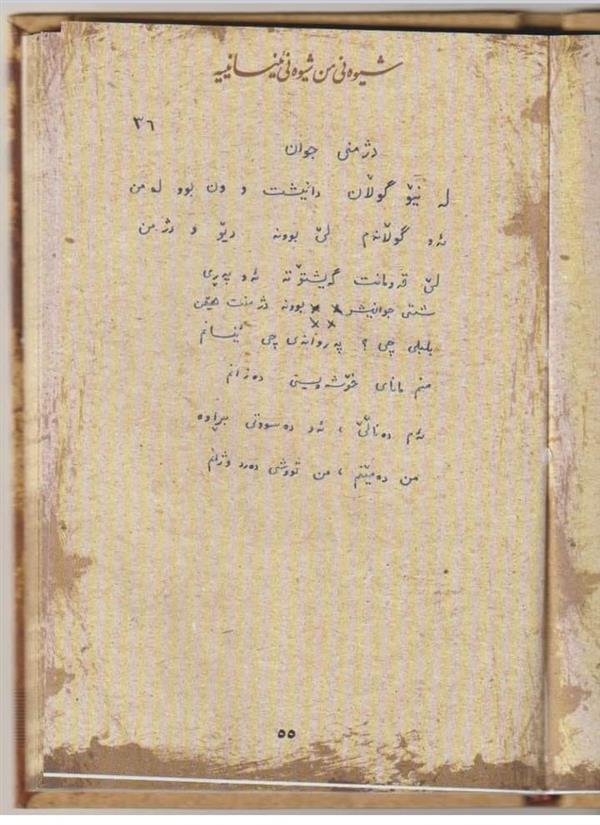 شیوه‌نی من شیوه‌نی ئینسانییه
٣٦
دژمنی جوان
لە نێو گوڵان دانیشت و ون بوو لە من
ئەو گوڵانەم لێ بوونە دێو و دژمن
لێ قەومانت گەیشتۆتە ئەو پەڕی
شتی جوانیشر بوونە دژمنت هێمن
بلبلی چی؟ پەروانەی چی ئینسانم
منم مانای خۆشەویستی دەزانم
ئەم دەناڵێ، ئەو دەسووتێ بڕاوە
من دەمێنم، من تووشی دەرد و ژانم
٥٥